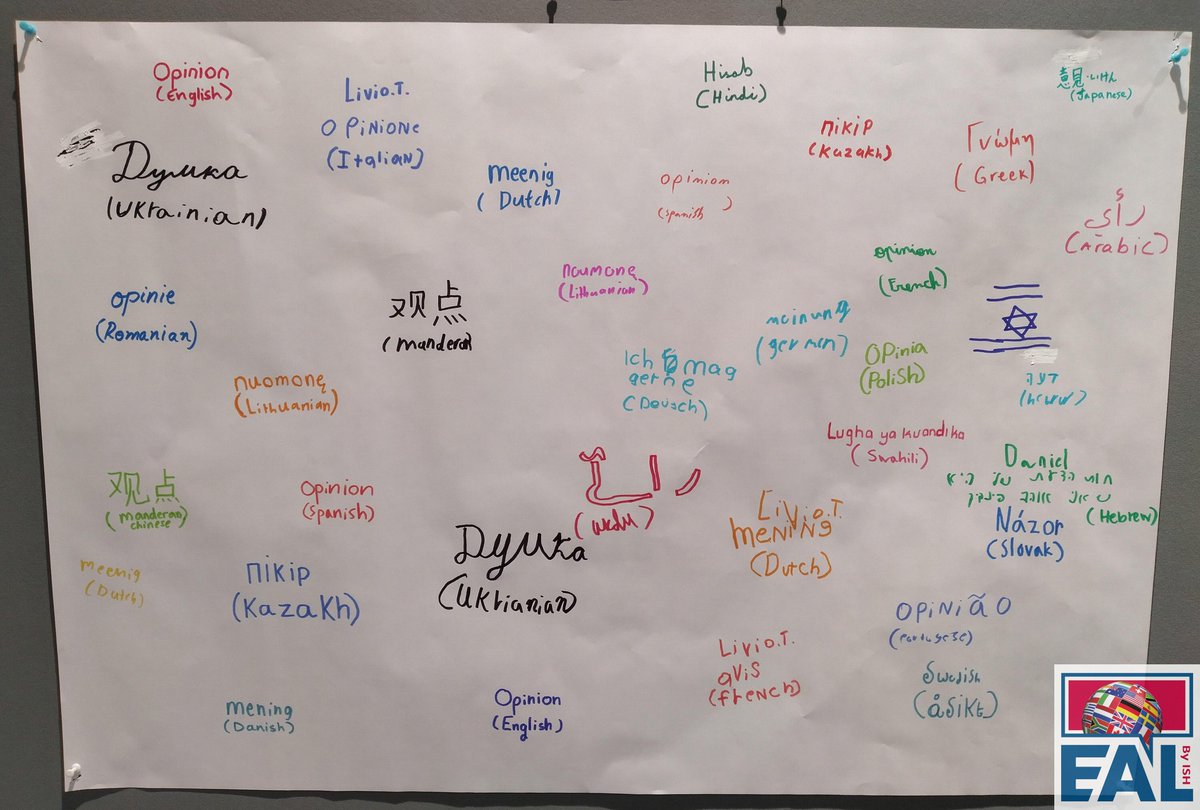 Opinion
(English)
Livio.T.
OPiNiONe
(ItaliaN)
Hisab
(Hindi)
意見・いけん
(Japanese)
Думка
(UKrainian)
meenig
(Dutch)
opinion
(spanish)
пікір
(Kazakh)
Γνώμη
(Greek)
رأي
(Arabic)
opinie
(Romanian)
观点
(manderan
noumonę
(Lithuanian)
opinion
(French)
meinung
(germen)
nuomonę
(Lithuanian)
Ich mag
gerne
(Deutsch)
Opinia
(Polish)
דעה
Lugha ya kuandika
(Swahili)
观点
(manderan
chinese)
Opinion
(Spanish)
رائے
(urdu)
Livio.T.
MENiNg
(Dutch)
Daniel
(Hebrew)
Názor
(Slovak)
Думка
(UKrianian)
meenig
(Dutch)
пікір
(KazaKh)
OPiNiÃO
(Portugese)
Livio.T.
avis
(french)
Swedish
(åsikt)
mening
(Danish)
Opinion
(English)
EAL
By ISH